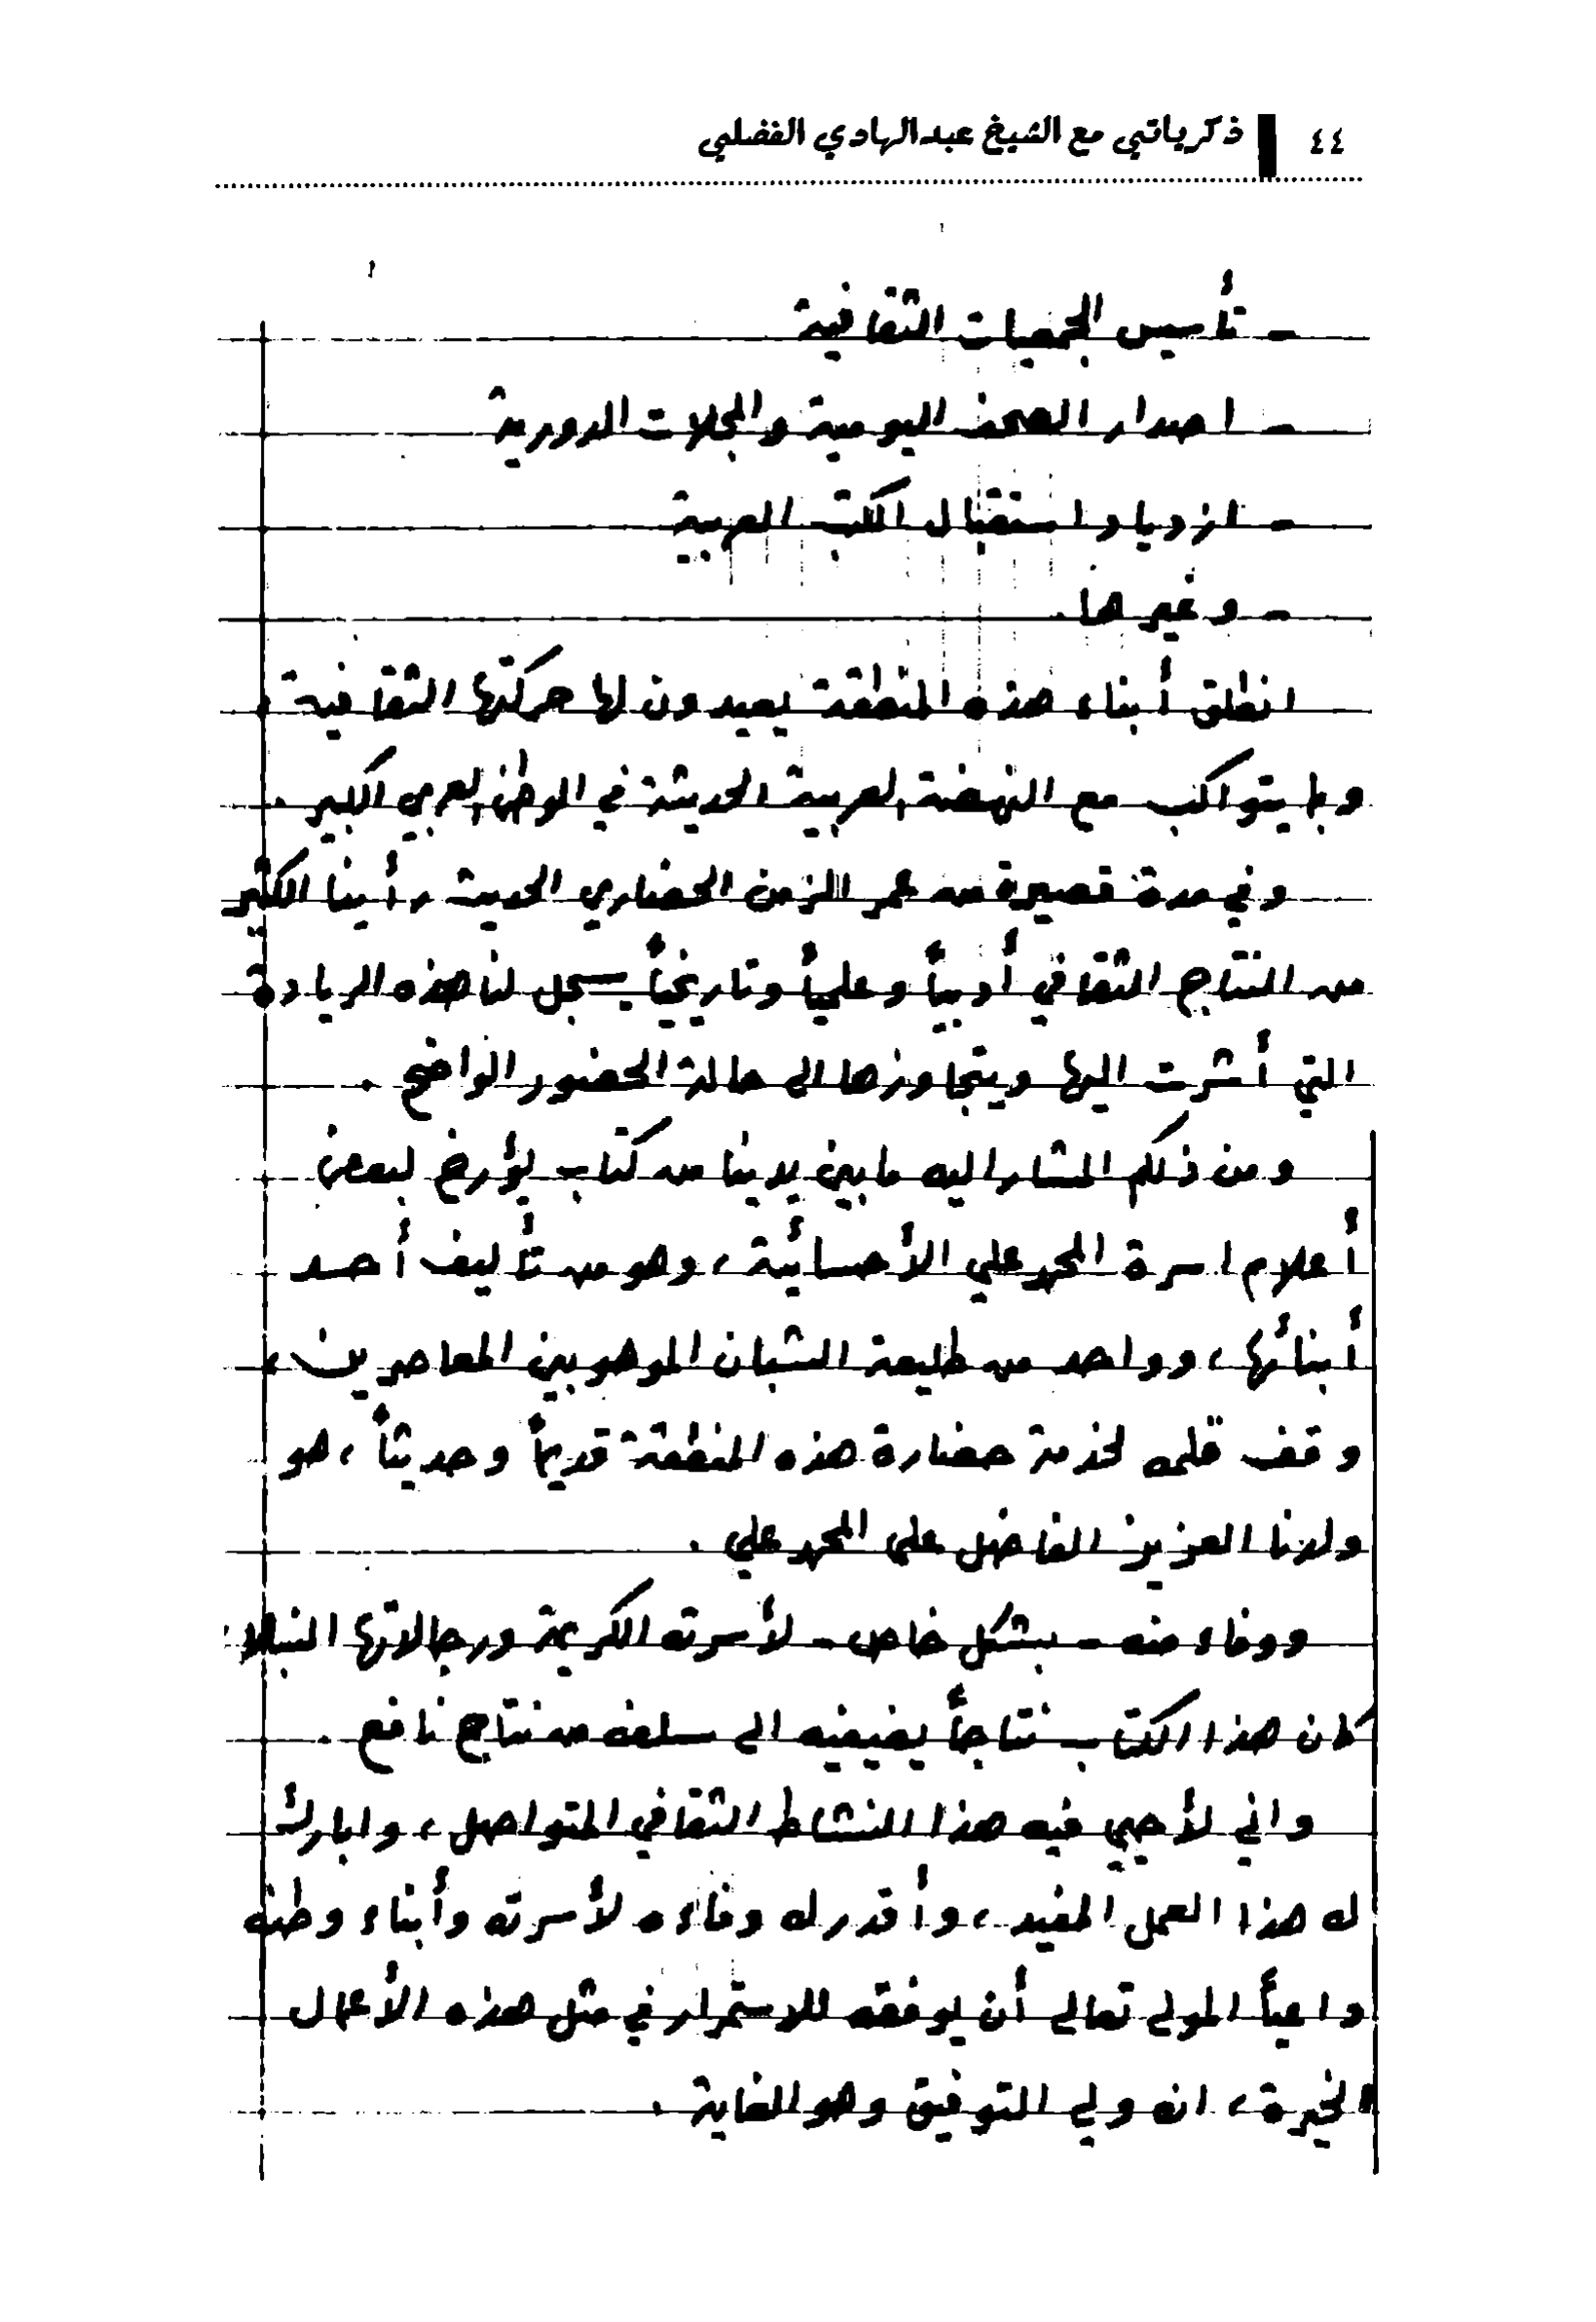 ٤٤ ذكرياتي مع الشيخ عبدالهادي الفضلي
- تأسيس الجمعيات الثقافية
- اصدار الصحف اليومية والمجلات الدورية
- ازدياد استقبال الكتب العربية
- وغيرها.
انطلق أبناء هذه المنطقة يعيدون لها حركتها الثقافية،
وبما يتواكب مع النهضة العربية الحديثة في الوطن العربي الكبير.
وفي مدة قصيرة من عمر الزمن الحضاري الحديث رأينا الكثير
من النتاج الثقافي أدبياً وعلمياً وتاريخياً يسجل لنا هذه الريادة
التي أشرت اليها ويتجاوزها الى حالة الحضور الواضح.
ومن ذلكم المشار اليه ما بين يدينا من كتاب يؤرخ لبعض
أعلام اسرة المحمد علي الأحسائية، وهو من تأليف أحد
أبنائها، وواحد من طليعة الشبان الموهوبين المعاصرين،
وقف قلمه لخدمة حضارة هذه المنطقة قديماً وحديثاً، هو
ولدنا العزيز الفاضل علي المحمد علي.
ووفاء منه - بشكل خاص - لأسرته الكريمة ورجالاتها النبلاء
كان هذا الكتاب نتاجاً يضيفه الى سلفه من نتاج نافع.
واني لأحيي فيه هذا النشاط الثقافي المتواصل، وابارك
له هذا العمل المفيد، وأقدر له وفاءه لأسرته وأبناء وطنه
داعياً المولى تعالى أن يوفقه للاستمرار في مثل هذه الأعمال
الخيرة، انه ولي التوفيق وهو الغاية.